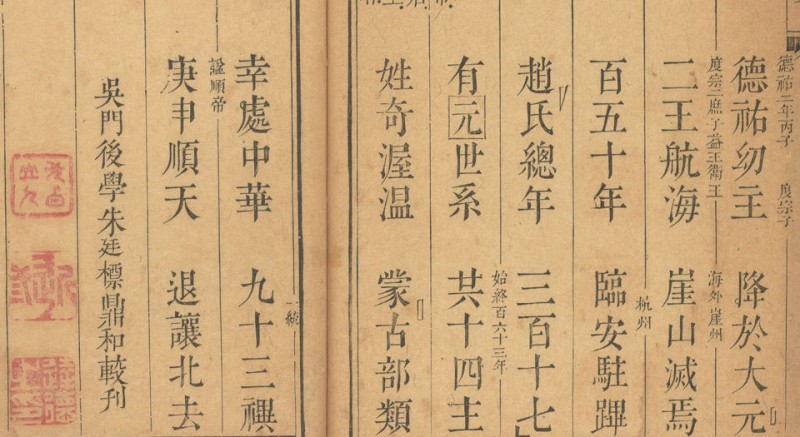 德祐二年丙子 度宗子
德祐幼主 降於大元
度宗二庶子益王衛王 海外崖州
二王航海 崖山滅焉
杭州
百五十年 臨安駐蹕
趙氏總年 三百十七
始終百六十三年
有元世系 共十四主
姓奇渥温 蒙古部類
一統
幸處中華 九十三禩
謚順帝
庚申順天 退讓北去
吳門後學朱廷標鼎和較刊